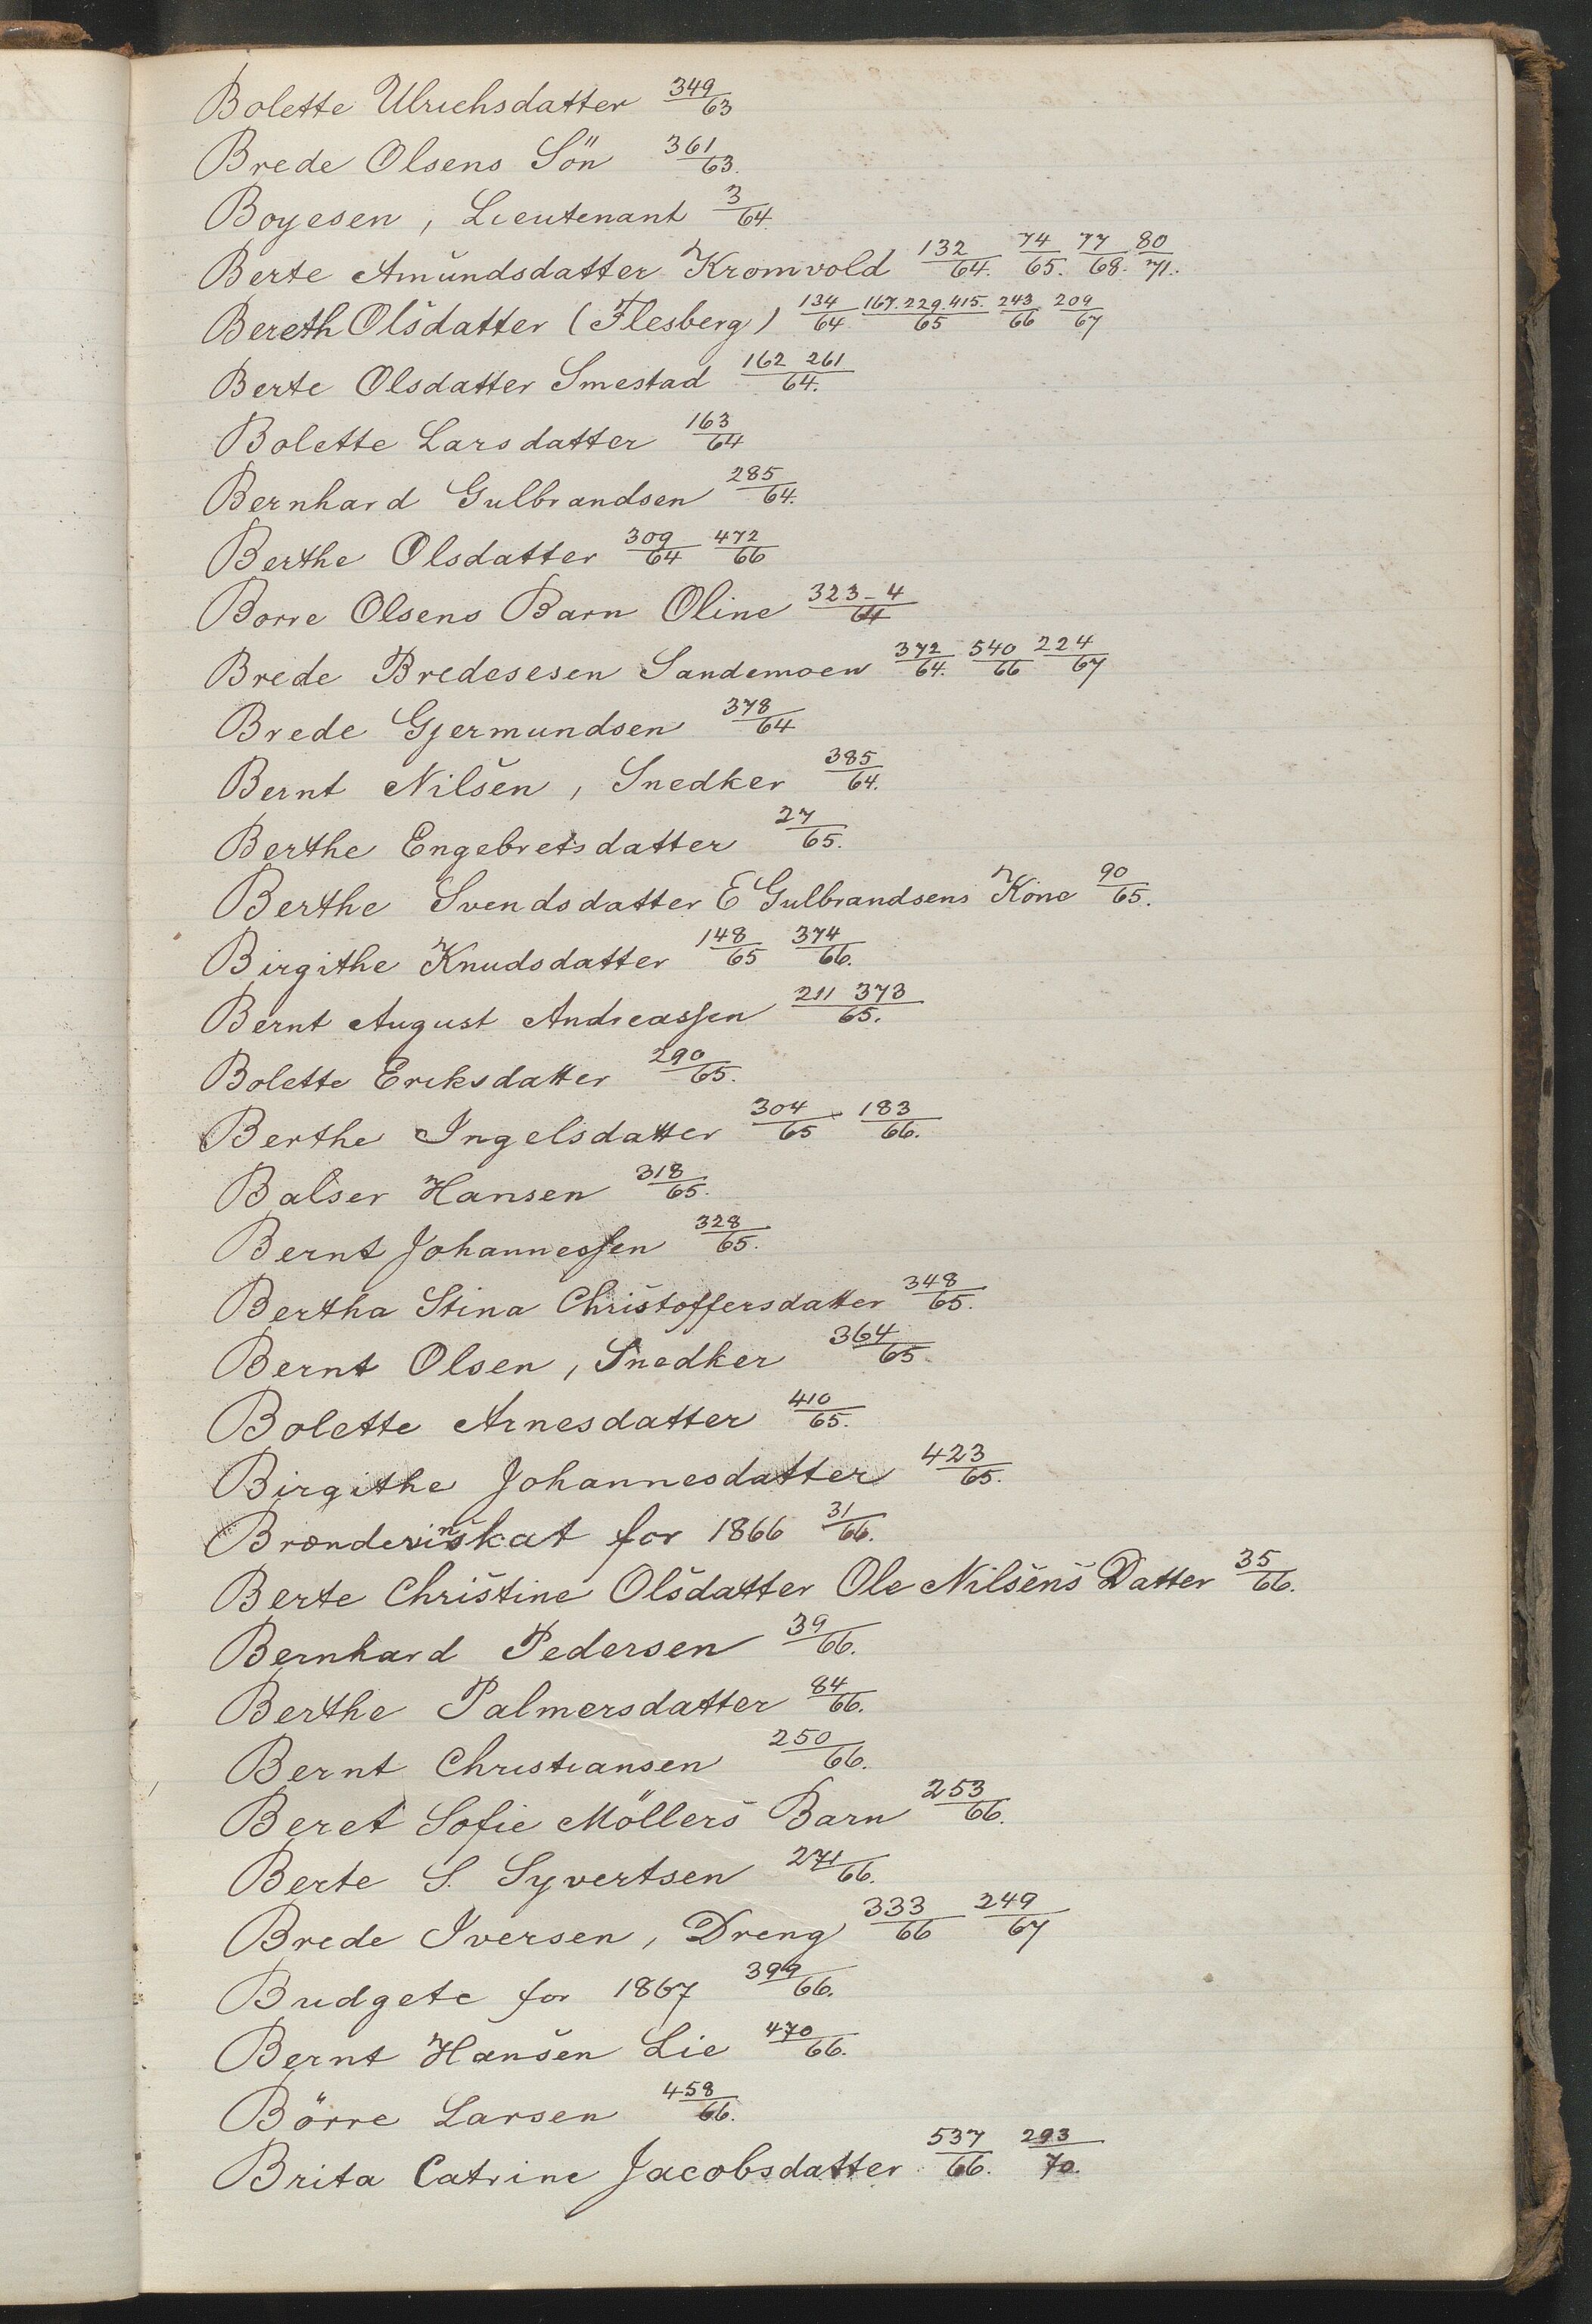 Bolette Ulrichsdatter 349/63
Brede Olsens Sön 361/63.
Boyesen, Lieutenant 3/64.
Berte Amundsdatter Kromvold 132/64. 74/65. 77/68. 80/71.
Bereth Olsdatter (Flesberg) 134/64. 167.229.415./65 243/66 209/67
Berte Olsdatter Smestad 162 261/64.
Bolette Larsdatter 163/64
Bernhard Gulbrandsen 285/64.
Berthe Olsdatter 309/64 472/66
Borre Olsens Barn Oline 323-4/64
Brede Bredesesen Sandemoen 372/64. 540/66 224/67
Brede Gjermundsen 378/64
Bernt Nilsen, Snedker 385/64.
Berthe Engebretsdatter 27/65.
Berthe Svendsdatter E Gulbrandsens Kone 90/65.
Birgithe Knudsdatter 148/65 374/66.
Bernt August Andreassen 211 373/65.
Bolette Eriksdatter 290/65.
Berthe Ingelsdatter 304/65 183/66.
Balser Hansen 318/65.
Bernt Johannessen 328/65.
Bertha Stina Christoffersdatter 348/65.
Bernt Olsen, Snedker 364/65.
Bolette Arnesdatter 410/65.
Birgithe Johannesdatter 423/65.
for 1866 31/66.
Berte Christine Olsdatter Ole Nilsens Datter 35/66.
Bernhard Pedersen 39/66.
Berthe Palmersdatter 84/66.
Bernt Christiansen 250/66.
Beret Sofie Möllers Barn 253/66.
Berte S. Syvertsen 271/66.
Brede Iversen, Dreng 333/66 249/67
Budgete for 1867 399/66.
Bernt Hansen Lie 470/66.
Börre Larsen 458/66.
Brita Catrine Jacobsdatter 537/66. 293/70.